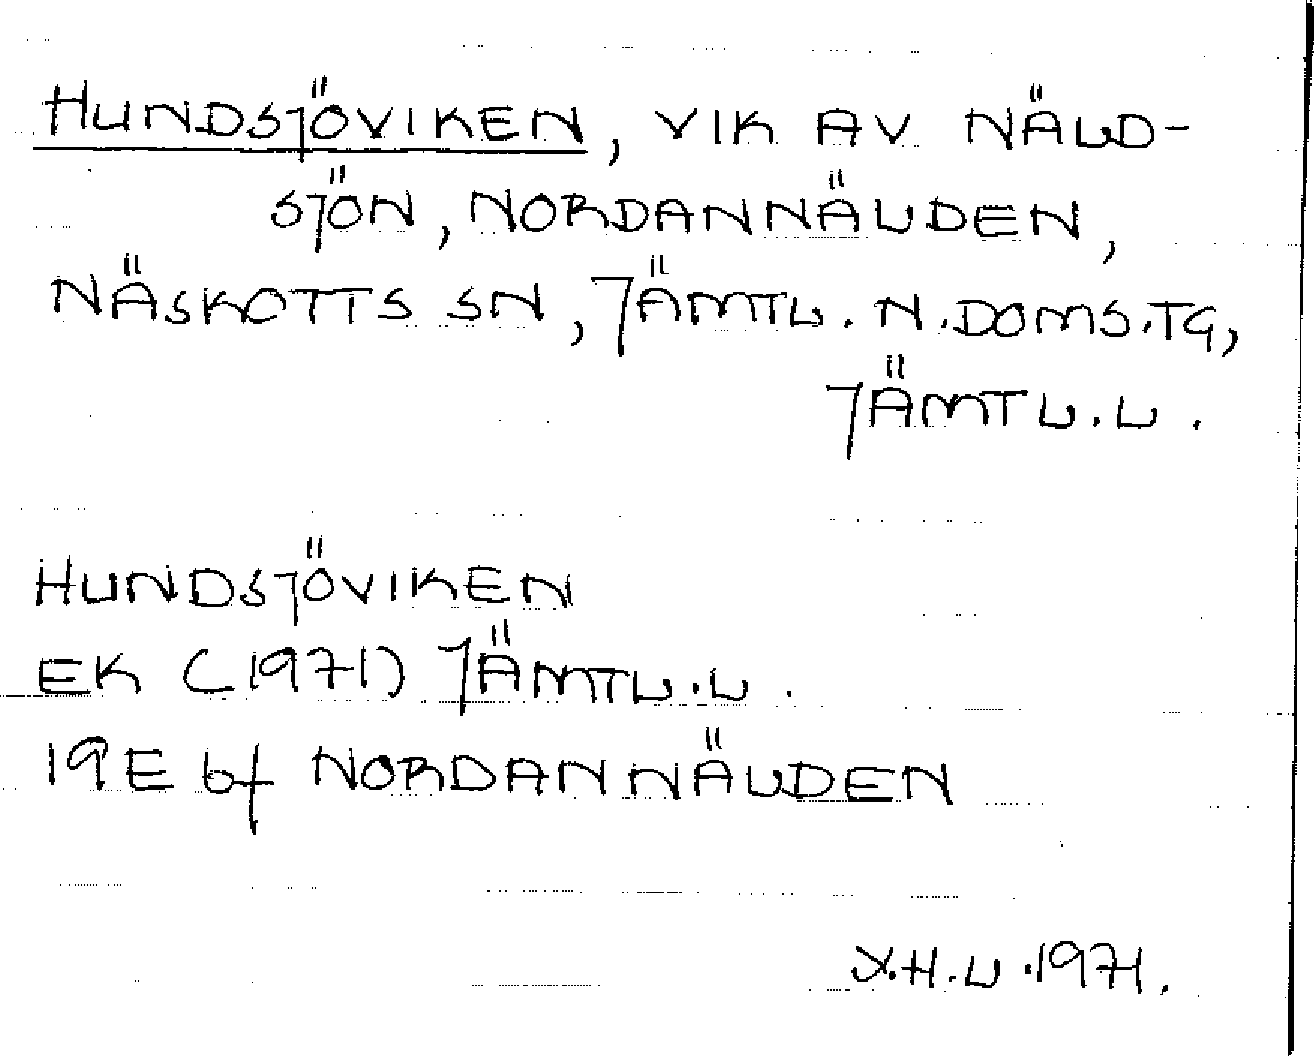 HUNDSJÖVIKEN, VIK AV NÄLD-
SJÖN, NORDANNÄLDEN,
NÄSKOTTS SN, JÄMTL. N. DOMS. TG,
JÄMTL. L.
HUNDSJÖVIKEN
EK (1971) JÄMTL. L.
19E 6f NORDANNÄLDEN
X.H.L. 1971.